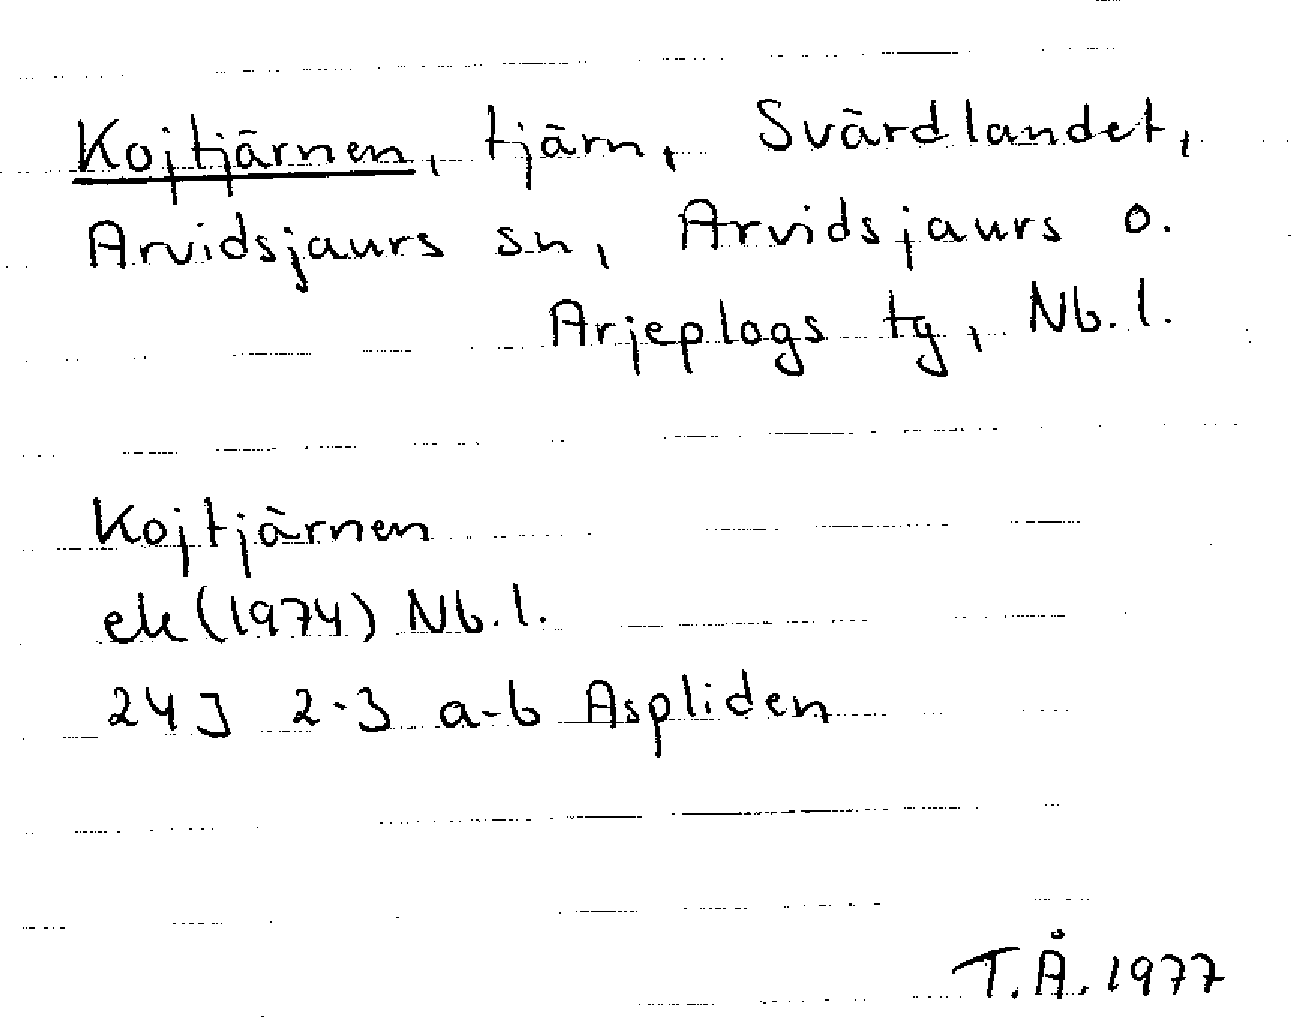 Kojtjärnen, tjärn, Svärdlandet,
Arvidsjaurs sn, Arvidsjaurs o.
Arjeplogs tg, Nb.l.
Kojtjärnen
ek (1974) Nb.l.
24J 2-3 a-b Aspliden
T.Å. 1977